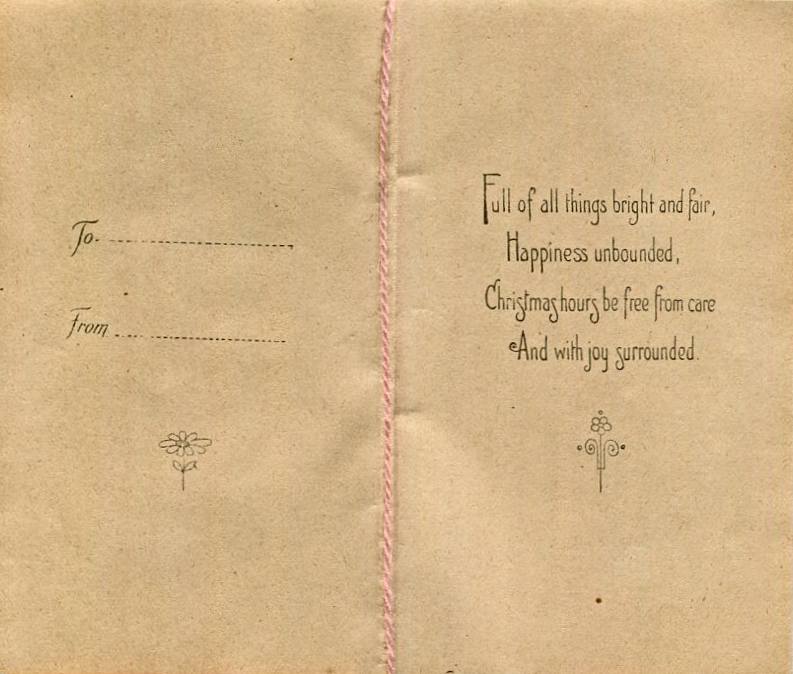 To.
From
Full of all things bright and fair,
Happiness unbounded,
Christmas hours be free from care
And with joy surrounded.